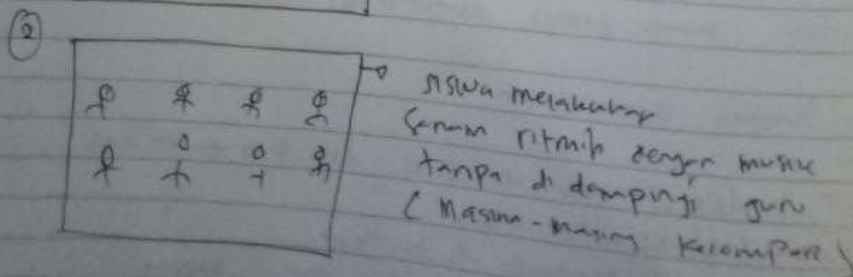 2
siswa melakukan
senam ritmik dengan musik
tanpa di dampingi guru
(masing-masing kelompok)